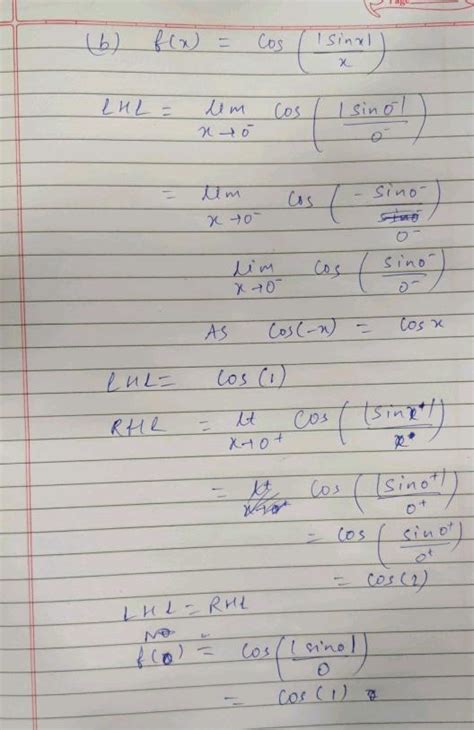 Page
(b) f(x) = cos (|sinx|/x)
LHL = lim x→0⁻ cos (|sin0⁻|/0⁻)
= lim x→0⁻ cos (-sin0⁻/0⁻)
lim x→0⁻ cos (sin0⁻/0⁻)
As cos(-x) = cosx
LHL = cos(1)
RHL = lt x→0⁺ cos (|sinx⁺|/x⁺)
= lt x→0⁺ cos (|sin0⁺|/0⁺)
= cos (sin0⁺/0⁺)
= cos(1)
LHL = RHL
No
f(0) = cos (|sin0|/0)
= cos(1)